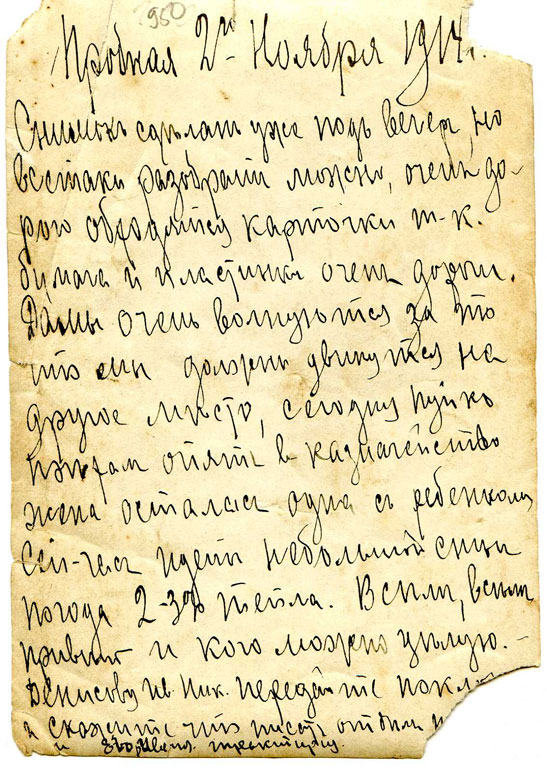 1950
Пробная 2го Ноября 1914г.
Снимокъ сдѣланъ уже подъ вечеръ, но
всетаки разобрать можно, очень до-
рого обходятся карточки т-к.
бумага и пластинки очень дороги.
Дамы очень волнуются за это
что мы должны двинутся на
другое мѣсто, сегодня
опять в казначейство
жена осталась одна съ ребенкомъ
Сей-часъ идетъ небольшой снѣгъ
погода 2-3% тепла. Всѣмъ, всѣмъ
привѣт и кого можно цѣлую.-
Денисову Ив. Ник. передайте
а скажите что писать
и